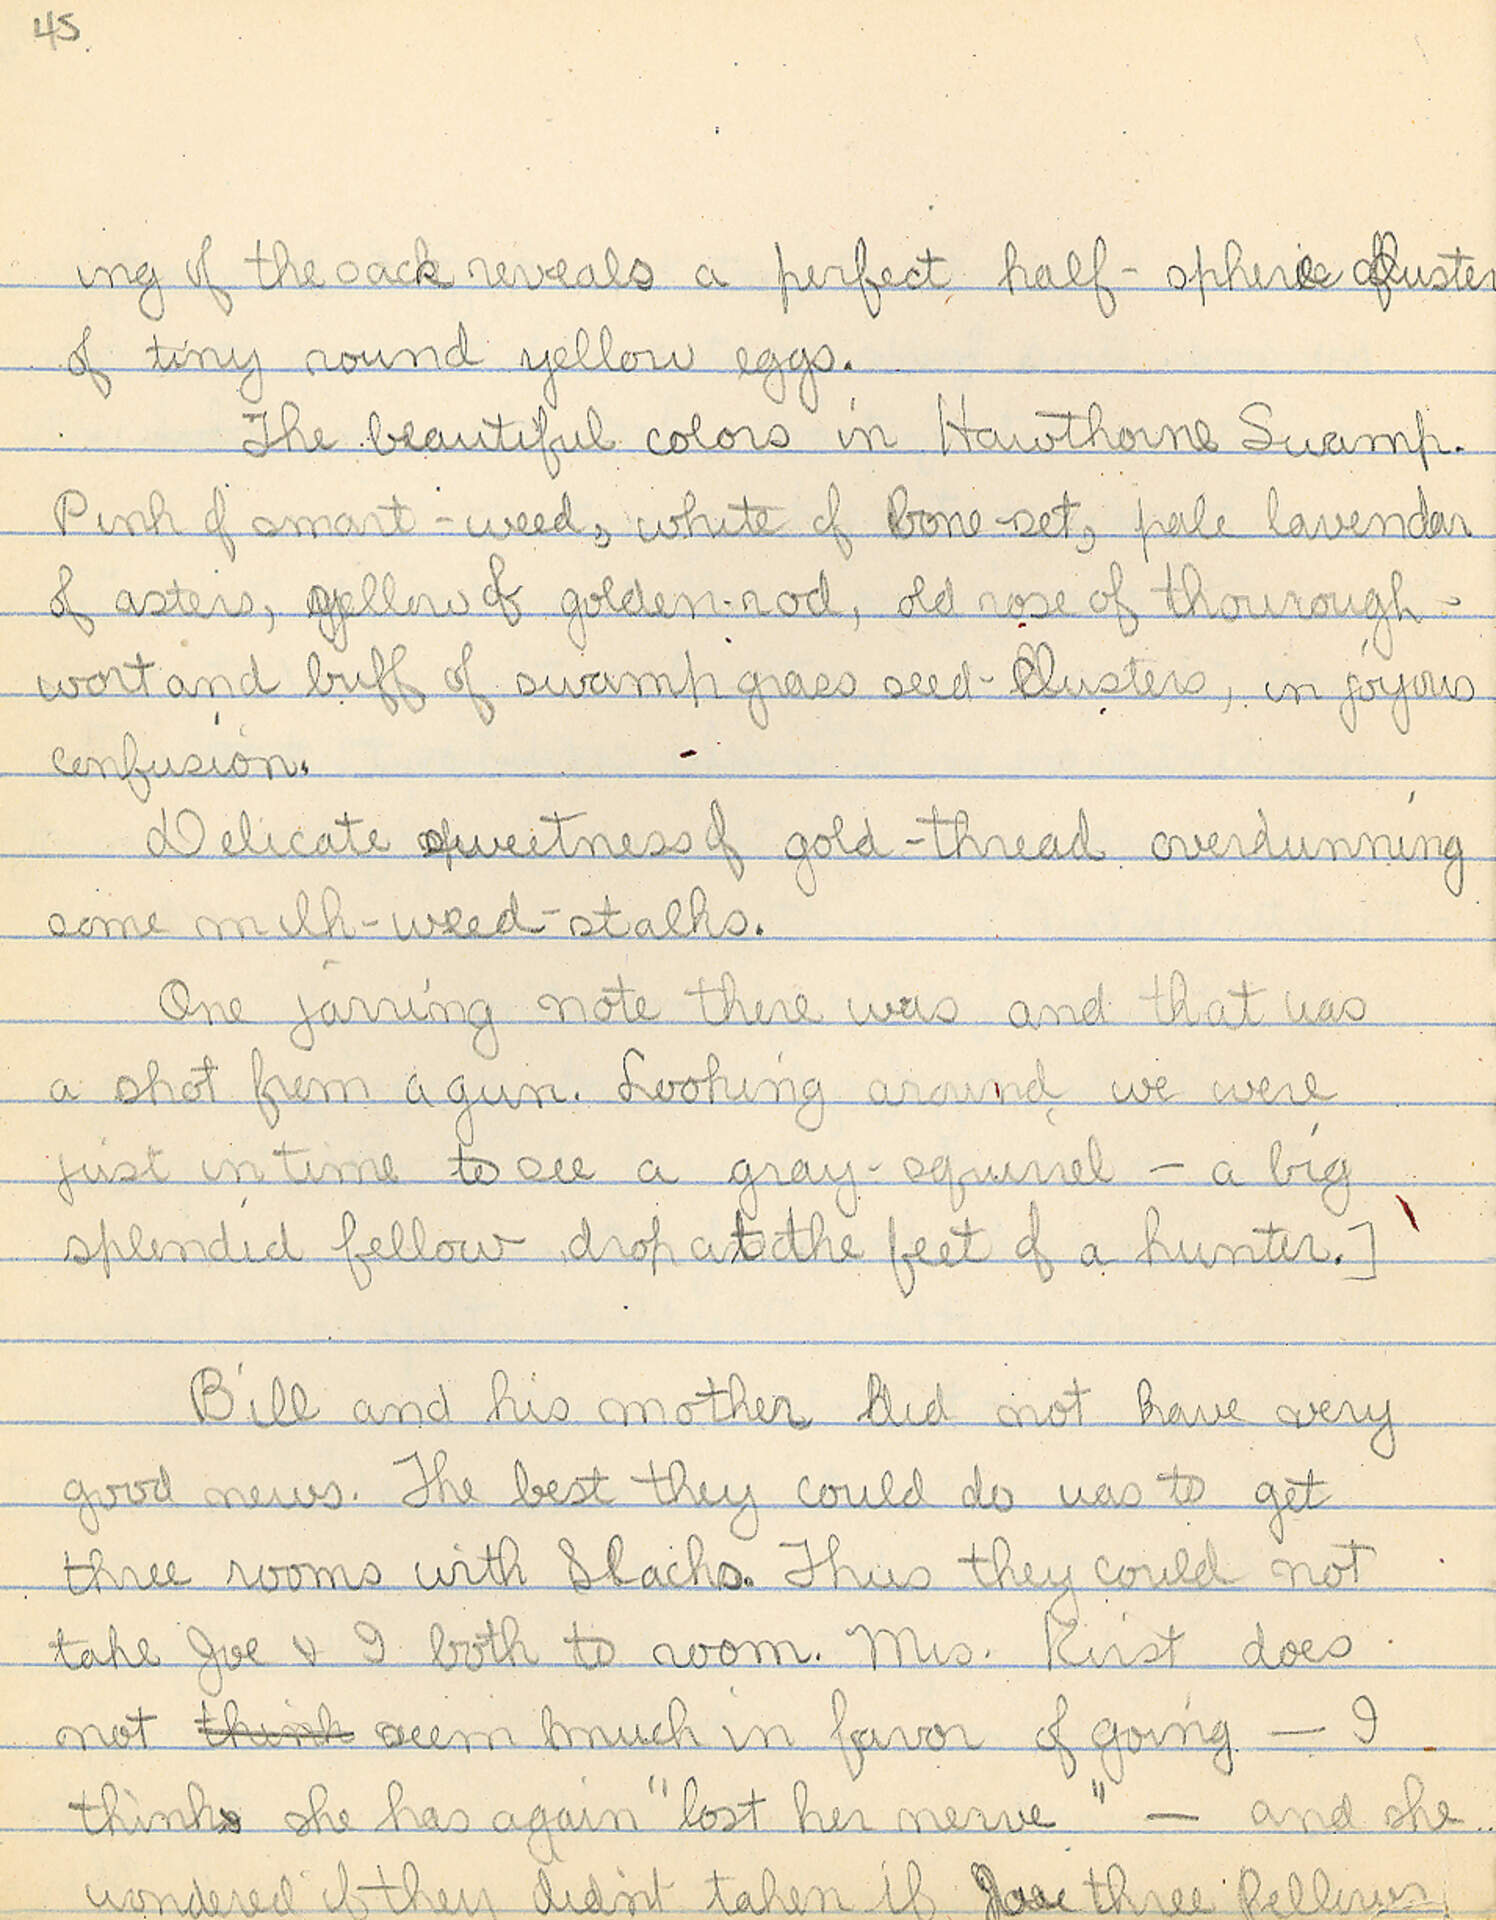 45
ing of the sack reveals a perfect half-spheric cluster
of tiny round yellow eggs.
The beautiful colors in Hawthorne Swamp.
Pink of smart-weed, white of bone-set, pale lavendar
of asters, yellow of golden-rod, old rose of thourough-
wort and buff of swamp grass seed-clusters, in joyous
confusion.
Delicate sweetness of gold-thread overrunning
some milk-weed-stalks.
One jarring note there was and that was
a shot from a gun. Looking around, we were
just in time to see a gray-squirrel - a big
splendid fellow drop at the feet of a hunter.]
Bill and his mother did not have very
good news. The best they could do was to get
three rooms with Slacks. Thus they could not
take Joe & I both to room. Mrs. Kirst does
not think seem much in favor of going — I
think she has again "lost her nerve" — and she
wondered if they didn't taken if three fellows